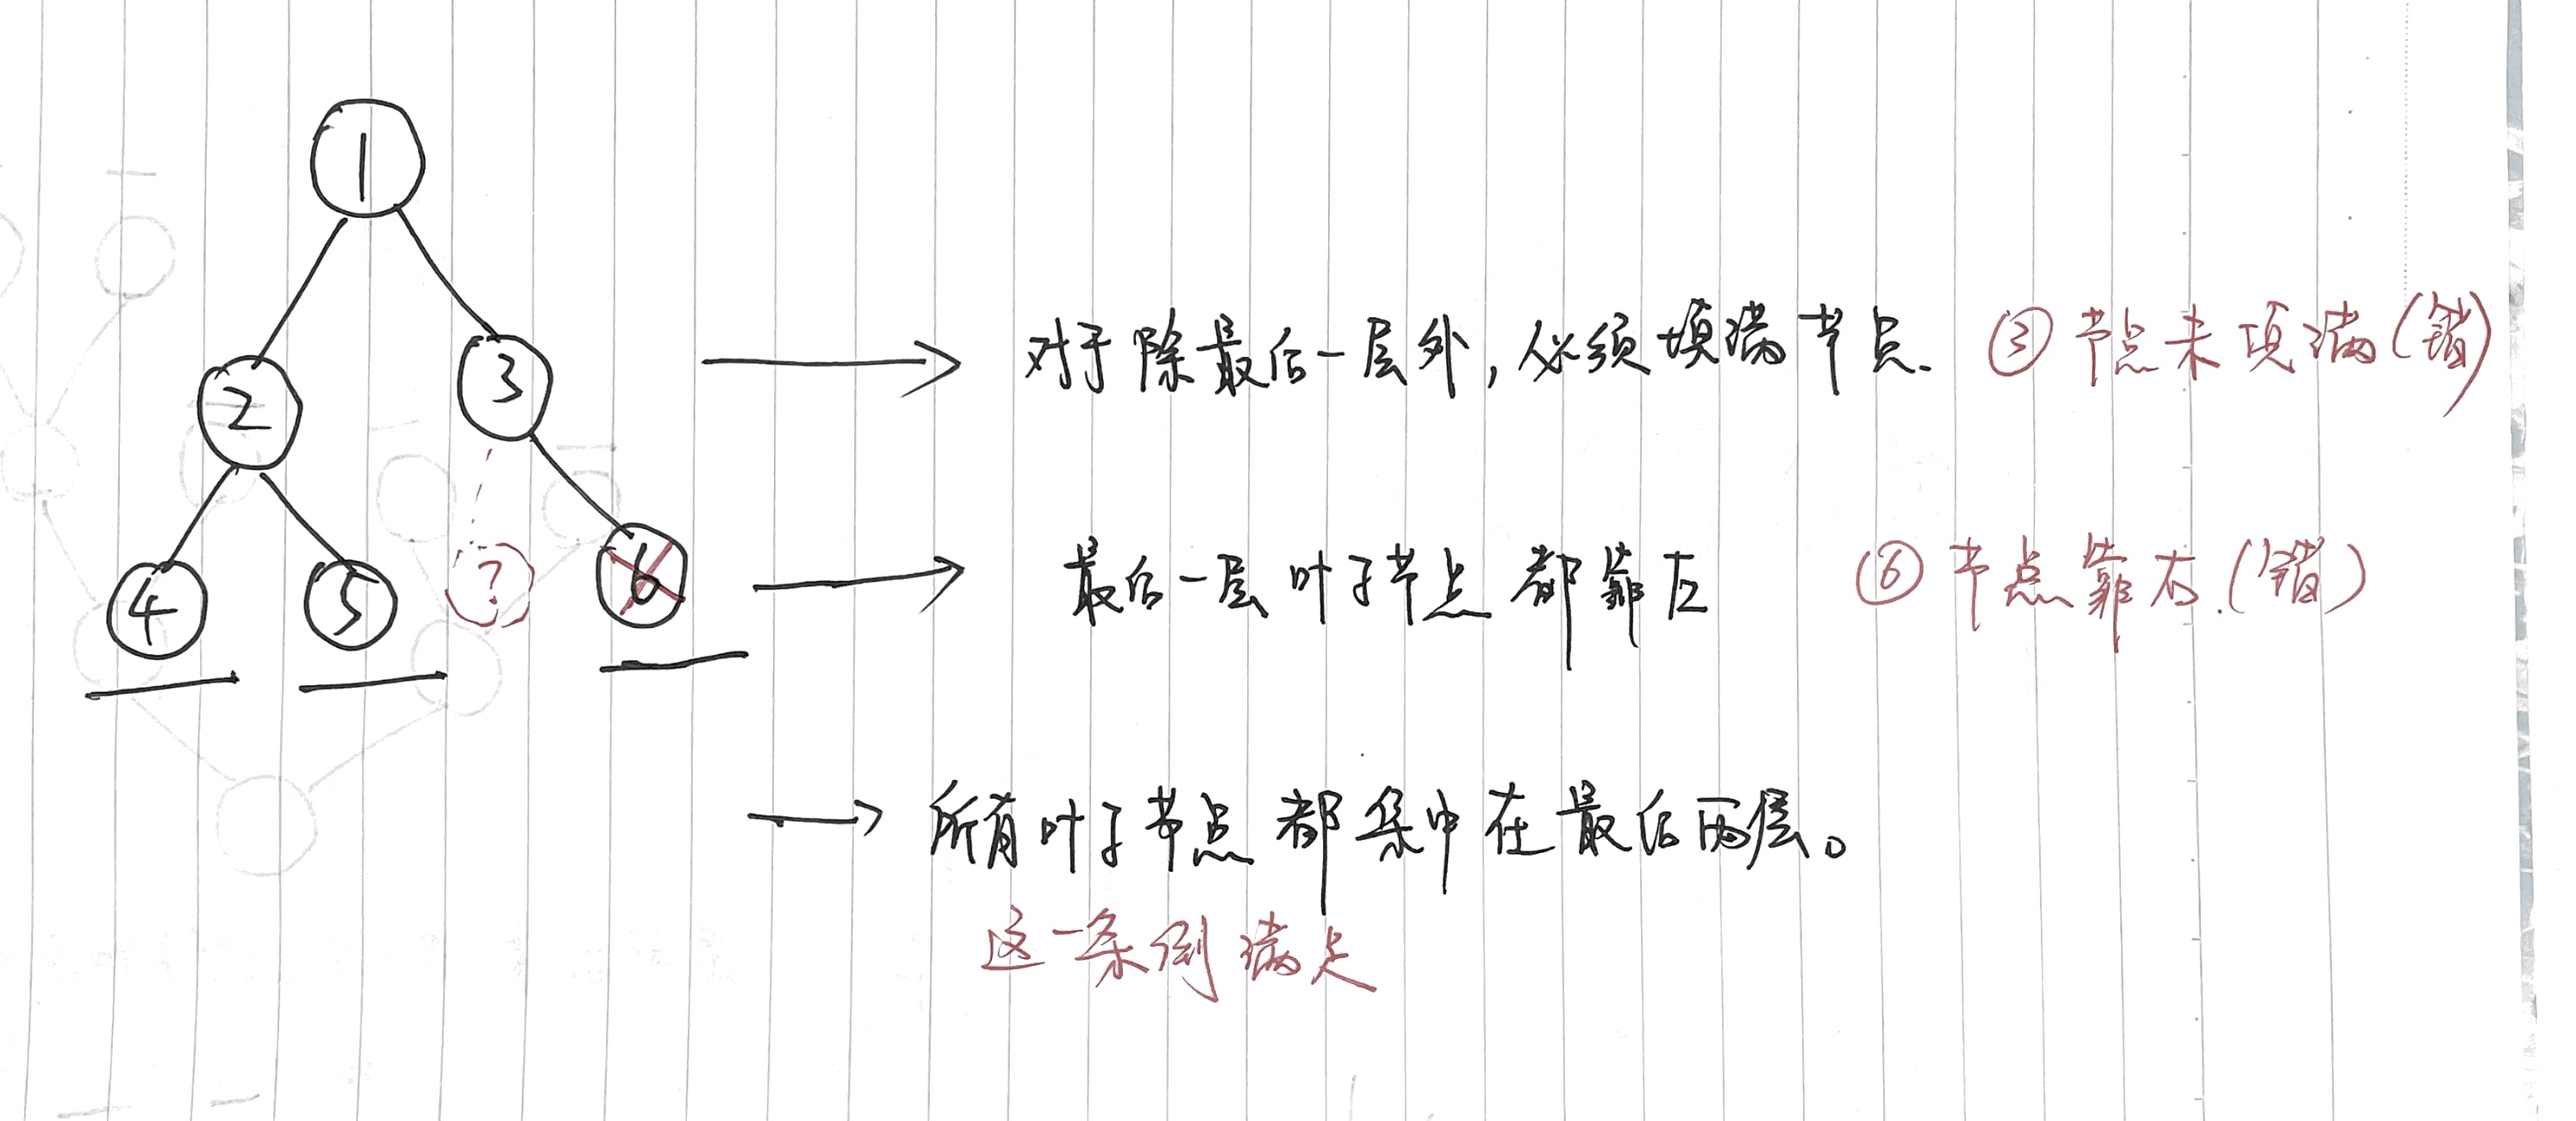 1
2
3
对于除最后一层外，必须填满节点. ③节点未填满(错)
4
5
?
6
最后一层叶子节点都靠左 ⑥节点靠右.(错)
所有叶子节点都集中在最后两层。
这一条倒满足